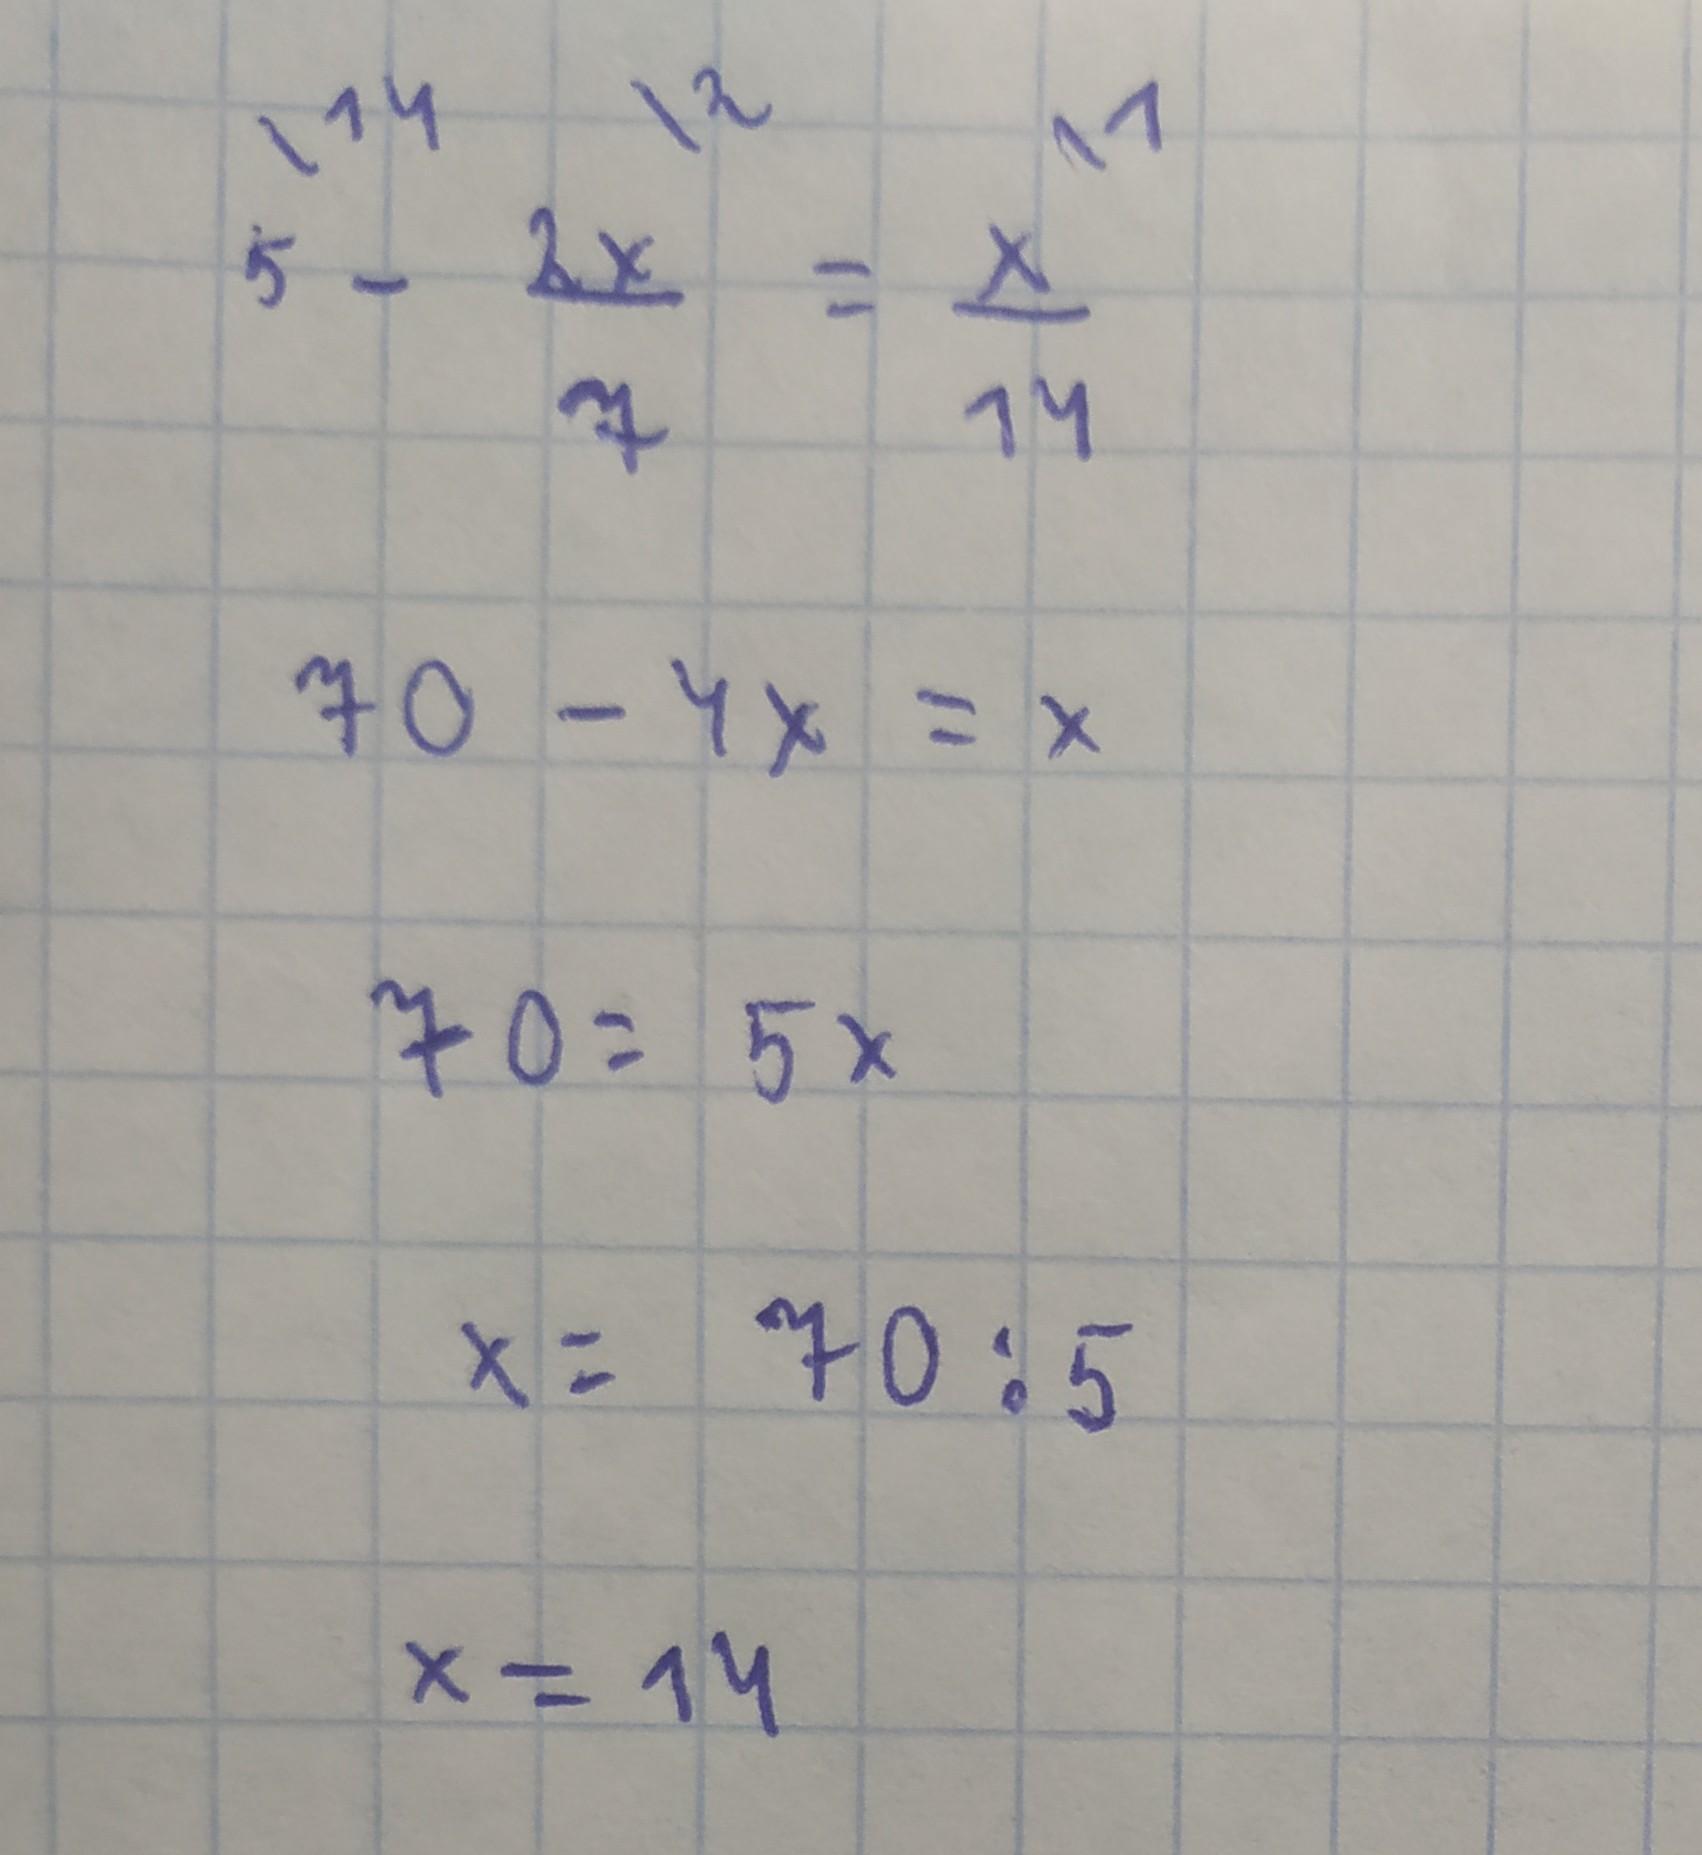 \14 \2 \1
5 - 2x/7 = x/14
70 - 4x = x
70 = 5x
x = 70 : 5
x = 14